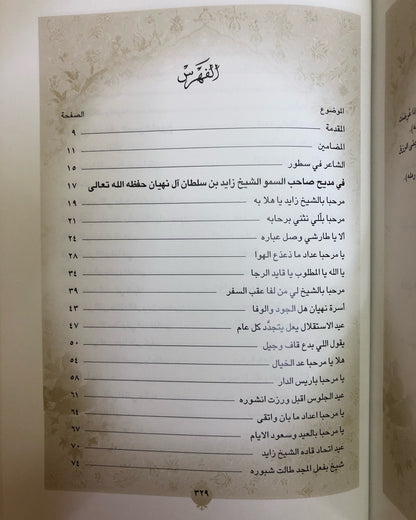 الفهرس
الموضوع الصفحة
المقدمة ٩
المضامين ١١
الشاعر في سطور ١٥
في مديح صاحب السمو الشيخ زايد بن سلطان آل نهيان حفظه الله تعالى ١٧
مرحبا بالشيخ زايد يا هلا به ١٩
مرحبا باللي نثني برحابه ٢١
ألا يا طارشي وصل عباره ٢٤
يا مرحبا عداد ما ذعذع الهوا ٢٨
يا الله يا المطلوب يا قايد الرجا ٣٤
مرحبا بالشيخ لي من لفا عقب السفر ٣٩
أسرة نهيان هل الجود والوفا ٤٣
عيد الاستقلال يعل يتجدَّد كل عام ٤٧
يقول اللي بدع قاف وجيل ٥٠
هلا يا مرحبا عد الخيال ٥٤
يا مرحبا باريس الدار ٥٨
عيد الجلوس اقبل ورزت انشوره ٦١
يا مرحبا اعداد ما بان واتقى ٦٤
يا مرحبا بالعيد وسعود الايام ٦٧
عيد اتحاد قاده الشيخ زايد ٧٠
شيخ بفعل المجد طالت شبوره ٧٤
٣٢٩